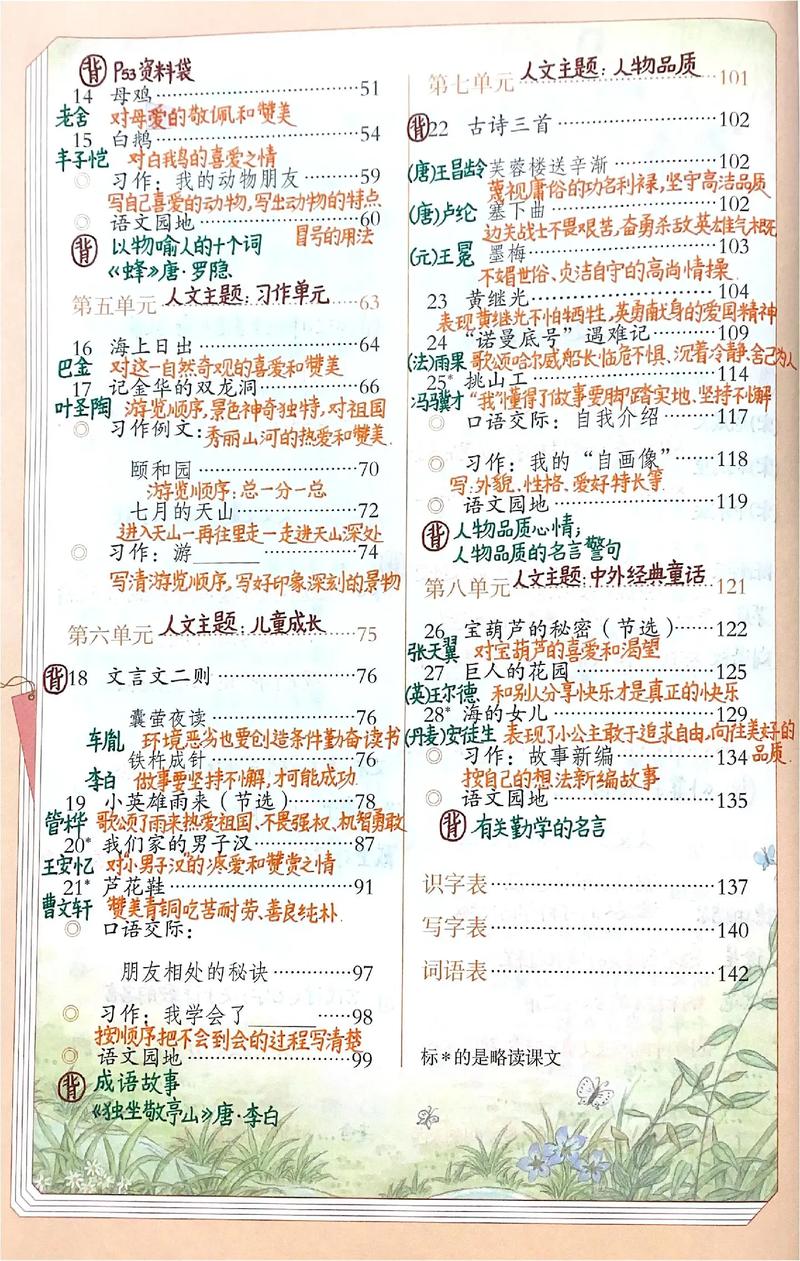 背 P53资料袋
14 母鸡 51
老舍 对母爱的敬佩和赞美
15 白鹅 54
丰子恺 对白我鸟的喜爱之情
◎ 习作：我的动物朋友 59
写自己喜爱的动物,写出动物的特点
◎ 语文园地 60
冒号的用法
背 以物喻人的十个词
《蜂》唐·罗隐
第五单元 人文主题：习作单元 63
16 海上日出 64
巴金 对这一自然奇观的喜爱和赞美
17 记金华的双龙洞 66
叶圣陶 游览顺序,景色神奇独特,对祖国
◎ 习作例文：秀丽山河的热爱和赞美
颐和园 70
游览顺序：总一分一总
七月的天山 72
进入天山一再往里走一走进天山深处
◎ 习作：游______ 74
写清游览顺序,写好印象深刻的景物
第六单元 人文主题：儿童成长 75
背 18 文言文二则 76
囊萤夜读 76
车胤 环境恶劣也要创造条件勤奋读书
铁杵成针 76
李白 做事要坚持不懈,才可能成功.
19 小英雄雨来（节选） 78
管桦 歌颂了雨来热爱祖国、不畏强权、机智勇敢
20* 我们家的男子汉 87
王安忆 对“小男子汉”的疼爱和赞赏之情
21* 芦花鞋 91
曹文轩 赞美青铜吃苦而耐劳、善良纯朴.
◎ 口语交际：
朋友相处的秘诀 97
◎ 习作：我学会了______ 98
按顺序把不会到会的过程写清楚
◎ 语文园地 99
背 成语故事
《独坐敬亭山》唐·李白
第七单元 人文主题：人物品质 101
背 22 古诗三首 102
(唐)王昌龄 芙蓉楼送辛渐 102
蔑视庸俗的功名利禄,坚守高洁品质
(唐)卢纶 塞下曲 102
边关战士不畏艰苦,奋勇杀敌英雄气概
(元)王冕 墨梅 103
不媚世俗、贞洁自守的高尚情操.
23 黄继光 104
表现黄继光不怕牺牲,英勇献身的爱国精神
24 “诺曼底号”遇难记 109
(法)雨果 歌颂哈尔威船长临危不惧、沉着冷静、舍己为人
25* 挑山工 114
冯骥才 “我”懂得了做事要脚踏实地、坚持不懈
◎ 口语交际：自我介绍 117
◎ 习作：我的“自画像” 118
写：外貌、性格、爱好特长等
◎ 语文园地 119
背 人物品质心情；
人物品质的名言警句
第八单元 人文主题：中外经典童话 121
26 宝葫芦的秘密（节选） 122
张天翼 对宝葫芦的喜爱和渴望
27 巨人的花园 125
(英)王尔德 和别人分享快乐才是真正的快乐
28* 海的女儿 129
(丹麦)安徒生 表现了小公主敢于追求自由,向往美好的
品质.
◎ 习作：故事新编 134
按自己的想法新编故事
◎ 语文园地 135
背 有关勤学的名言
识字表 137
写字表 140
词语表 142
标*的是略读课文